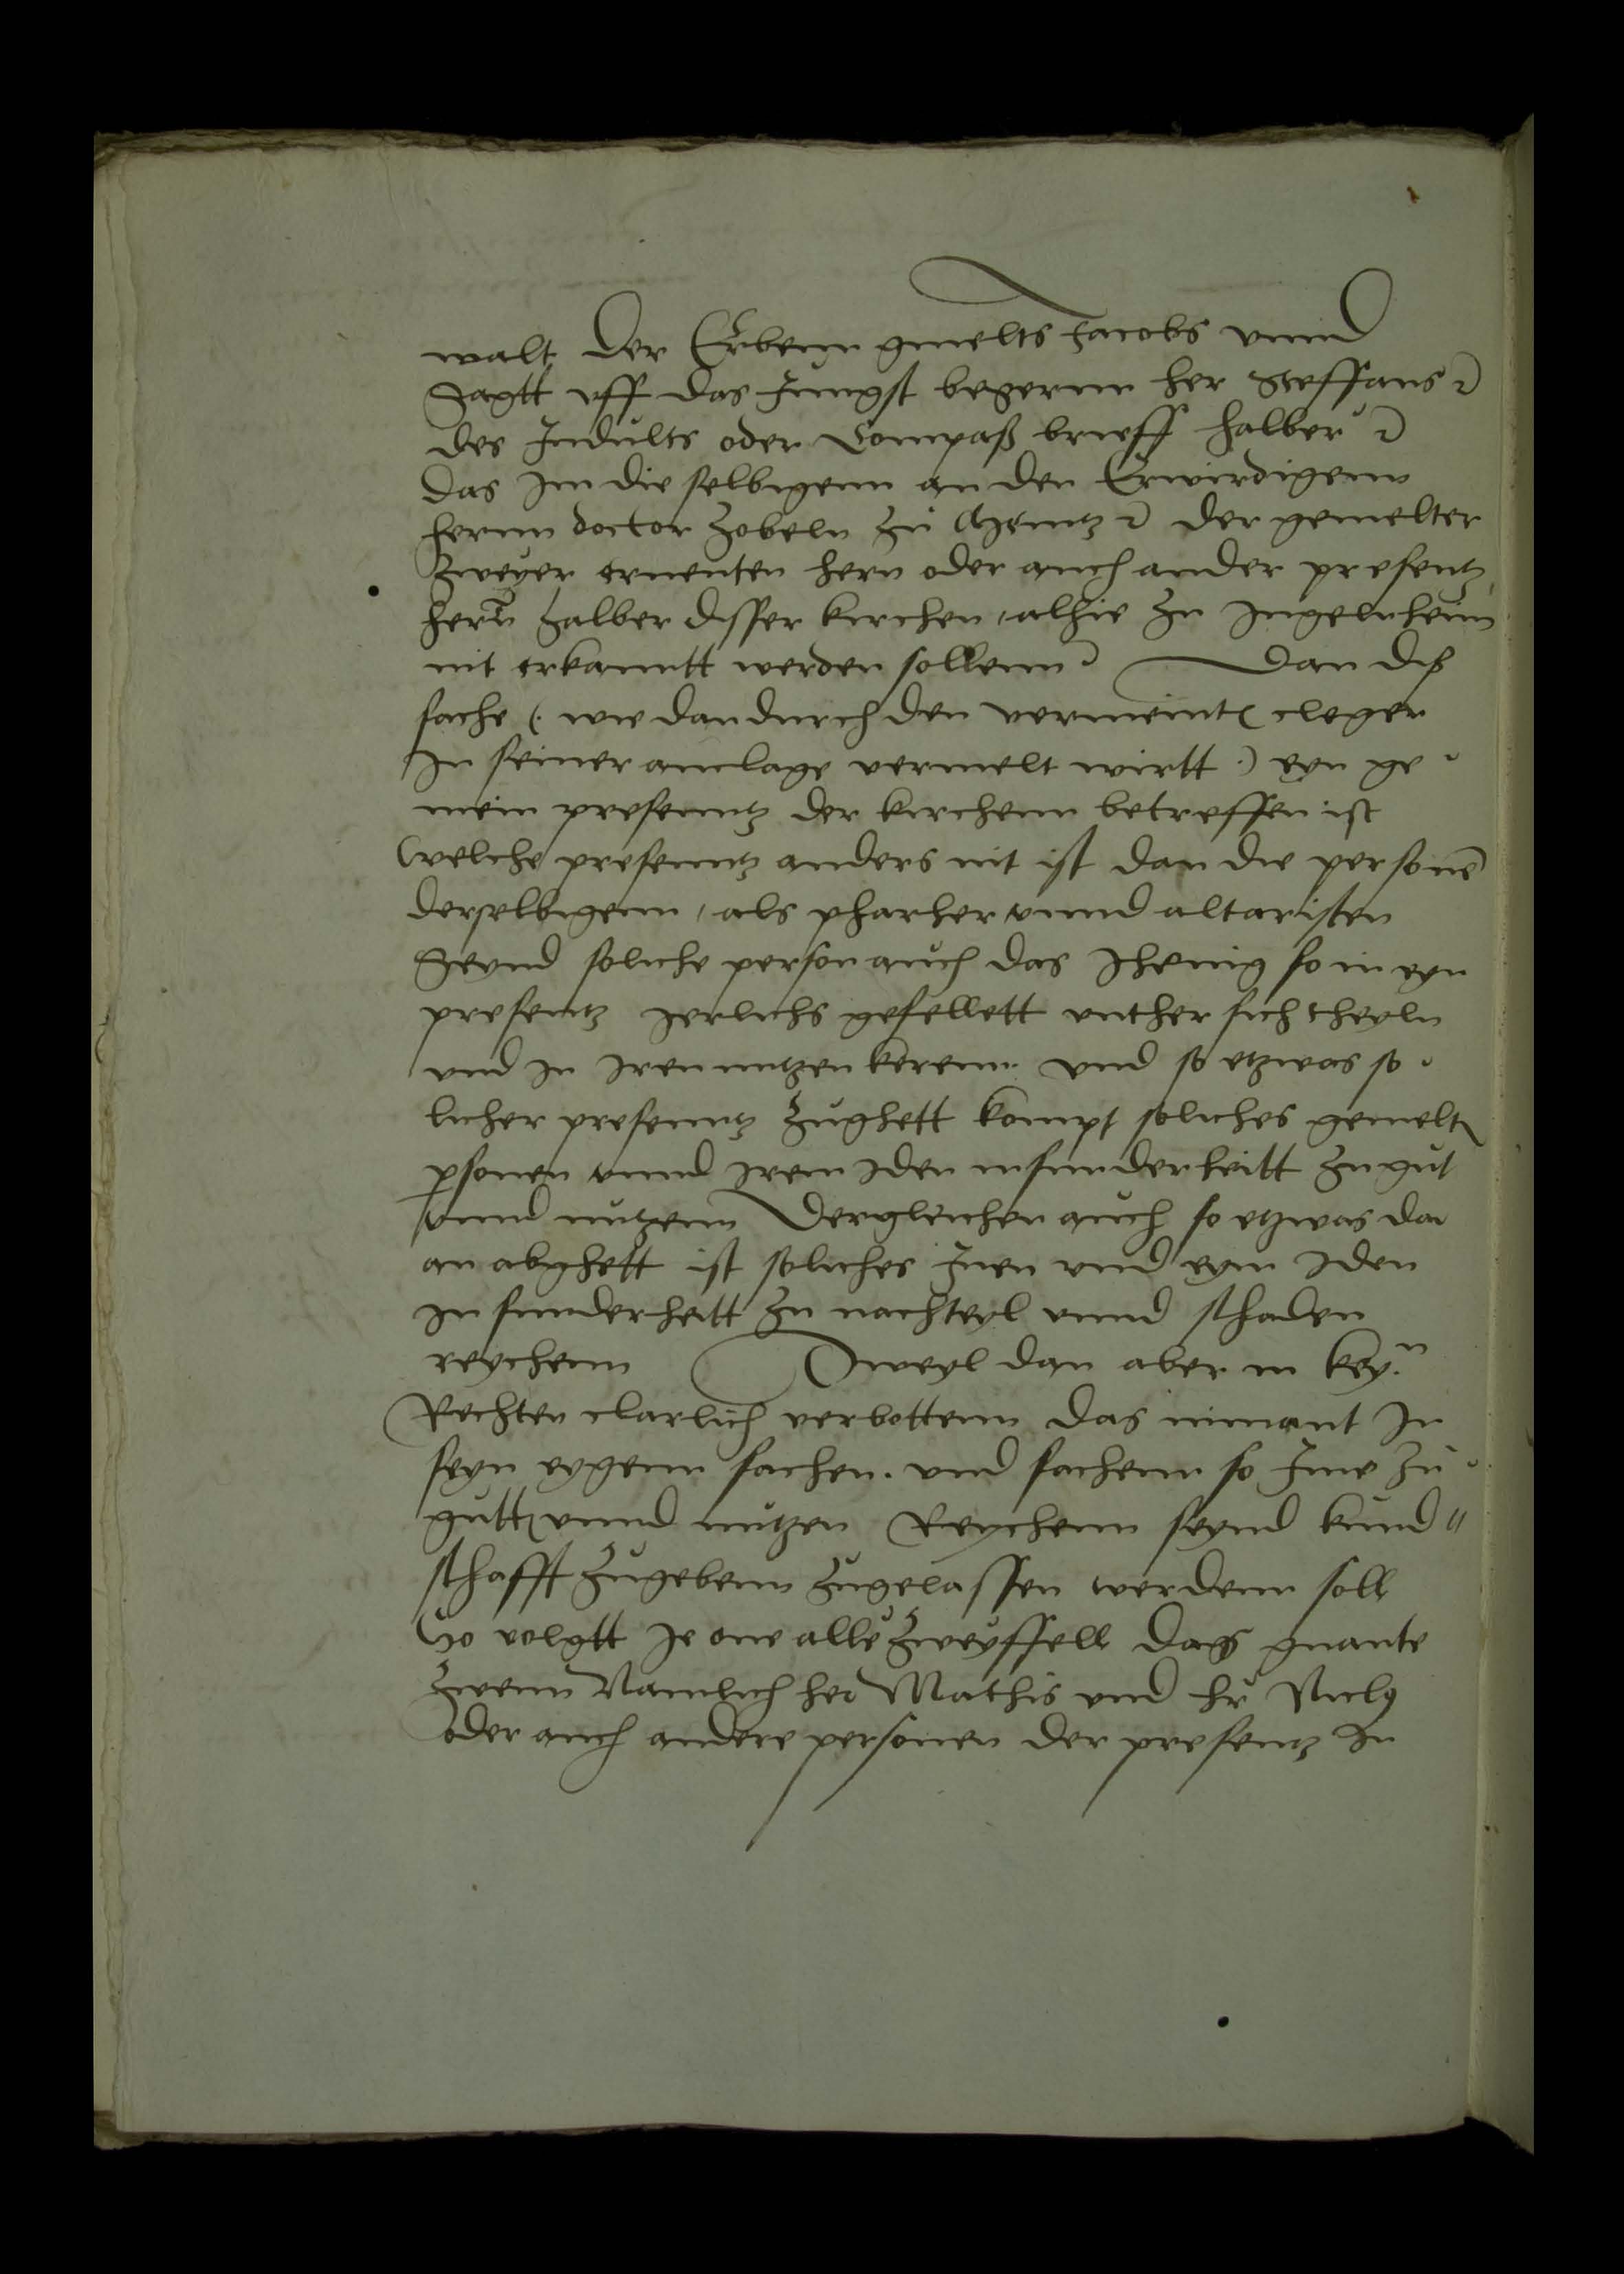 walt der Erbenn gmelts Jacobs vnnd
Sagtt vff das Jungst begernn her Steffans ꝛc
des Indults oder Compaß brieff halber ꝛc
das im die selbigenn an den Erwirdigenn
hernn doctor Zobeln zu Mentz ꝛc der gemelter
zweyer ernenten hern oder auch ander presentz
hern halber disser kirchen, alhie zu Ingelnheim
nit erkanntt werden sollenn Dan diß
sache (. wie dan durch den vermeintẽ cleger
In seiner anclage vermelt wirtt .) eyn ge
mein presenntz der kirchenn betreffen ist
Welche presenntz anders nit ist dan die personẽ
derselbigenn, als pharher vnnd altaristen
Seynd soliche person auch das Jhenig so in eyn
presentz Jerlichs gefellett vnther sich theyln
vnd in Iren nutzen kerenn. vnd so etzwas so
licher presenntz zughett kompt soliches gemeltẽ
p̱sonen vnnd irem iden insunderheitt zu gut
vnnd nutzenn Dergleichen auch so etzwas dar
an abghett ist soliches Inen vnd eym iden
In sunderheitt zu nachteyl vnnd schaden
reychenn Dweyl dan aber in key.n
Rechten clarlich verbottenn das nimant In
seyn eygenn sachen. vnd sachenn so Ime zu
guttẽ vnnd nutzen Reychenn seynd kund
schafft zugebenn zugelassen werdenn soll
So volgtt Je one allẽ zweyffell dass gnante
zwenn Namlich her Mathis vnd hr Niclꝰ
oder auch andere personen der presentz In